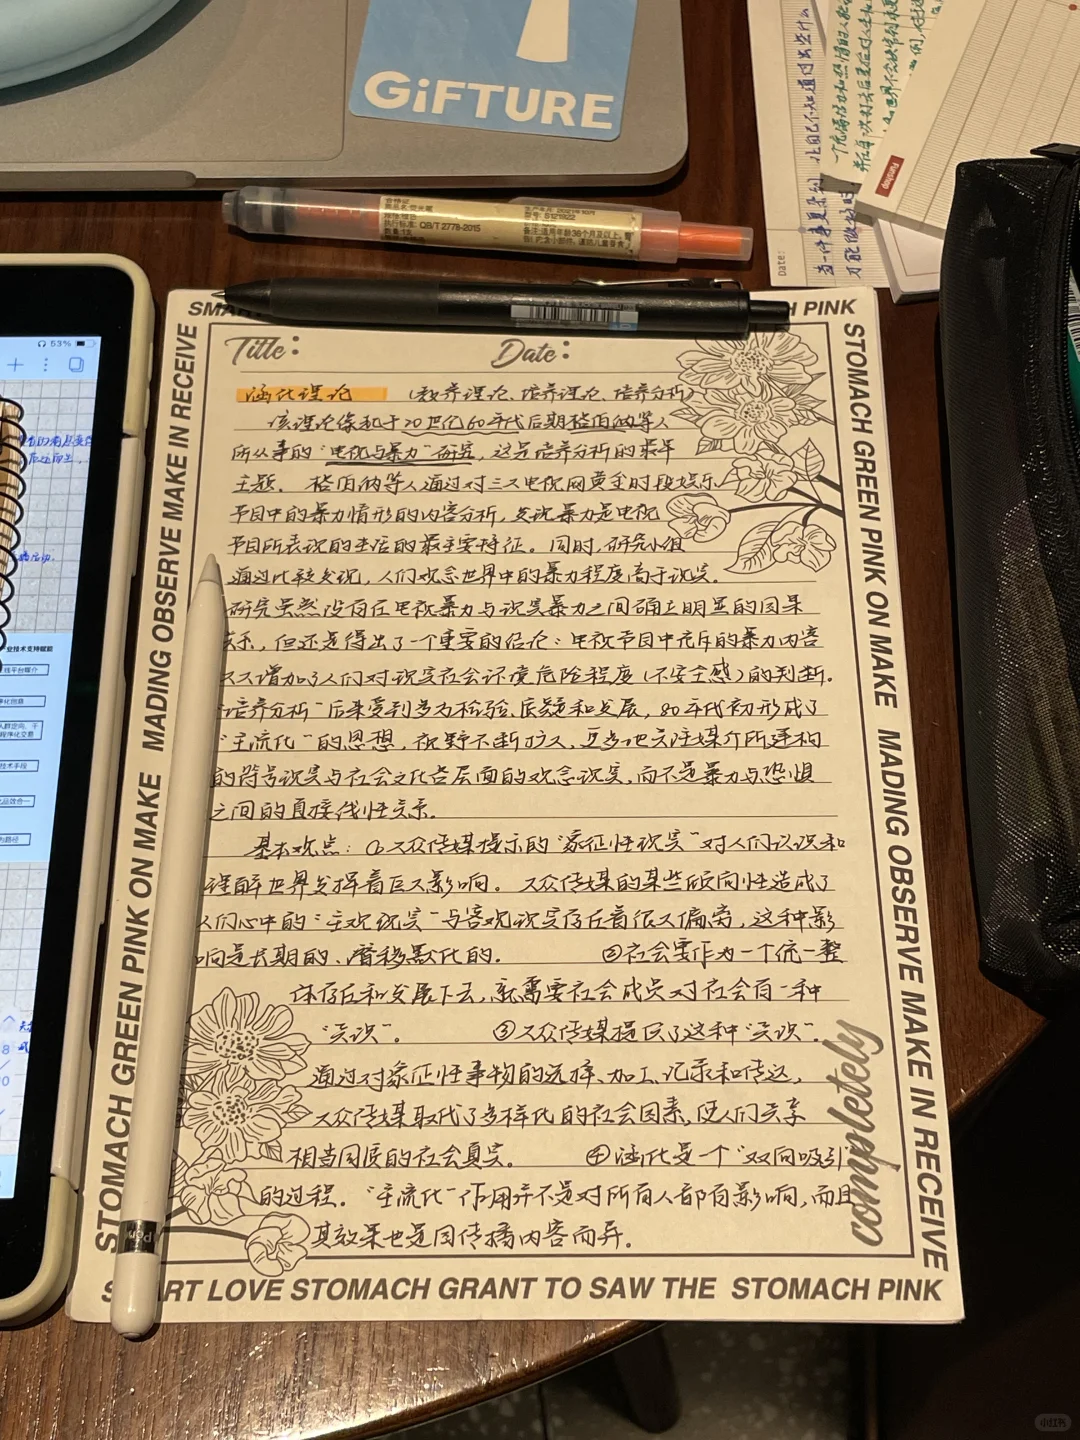 GiFTURE
合格证
QB/T 2778-2015
Funshop
Date:
53%
SMART
PINK
Title:
Date:
涵化理论 (教养理论、培养理论、培养分析)
该理论缘起于20世纪60年代后期格伯纳等人
所从事的“电视与暴力”研究，这是培养分析的最早
主题。格伯纳等人通过对三大电视网黄金时段娱乐
节目中的暴力情形的内容分析，发现暴力是电视
节目所表现的生活的最主要特征。同时，研究小组
通过比较发现，人们观念世界中的暴力程度高于现实。
研究虽然没有在电视暴力与现实暴力之间确立明显的因果
关系，但还是得出了一个重要的结论：电视节目中充斥的暴力内容
大大增加了人们对现实社会环境危险程度(不安全感)的判断。
“培养分析”后来受到多方检验、质疑和发展，80年代初形成了
“主流化”的思想，视野不断扩大，更多地关注媒介所建构
的符号现实与社会文化各层面的观念现实，而不是暴力与恐惧
之间的直接线性关系。
基本观点：①大众传媒提示的“象征性现实”对人们认识和
理解世界发挥着巨大影响。大众传媒的某些倾向性造成了
人们心中的“主观现实”与客观现实存在着很大偏离，这种影
响是长期的、潜移默化的。 ②社会要作为一个统一整
体存在和发展下去，就需要社会成员对社会有一种
“共识”。 ③大众传媒提供了这种“共识”。
通过对象征性事物的选择、加工、记录和传达，
大众传媒取代了多样化的社会因素，使人们共享
相当同质的社会真实。 ④涵化是一个“双向吸引”
的过程。“主流化”作用并不是对所有人都有影响，而且
其效果也是因传播内容而异。
completely
STOMACH GREEN PINK ON MAKE MADING OBSERVE MAKE IN RECEIVE
STOMACH GREEN PINK ON MAKE MADING OBSERVE MAKE IN RECEIVE
SMART LOVE STOMACH GRANT TO SAW THE STOMACH PINK
小红书